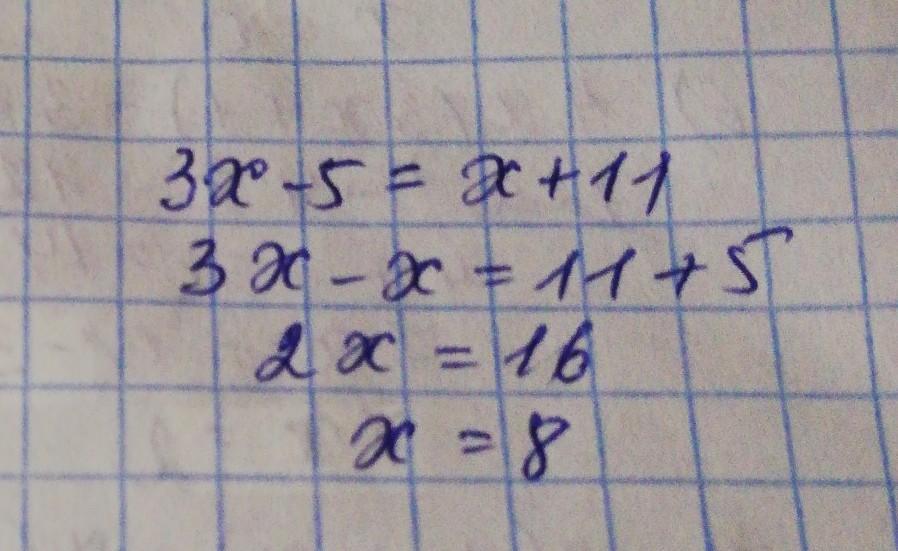 3x - 5 = x + 11
3x - x = 11 + 5
2x = 16
x = 8